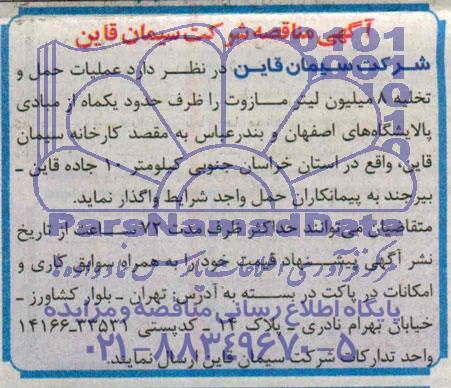 آگهی مناقصه شرکت سیمان قاین
شرکت سیمان قاین در نظر دارد عملیات حمل و
تخلیه ۸ میلیون لیتر مازوت را ظرف حدود یکماه از مبادی
پالایشگاه‌های اصفهان و بندرعباس به مقصد کارخانه سیمان
قاین، واقع در استان خراسان جنوبی کیلومتر ۱۰ جاده قاین -
بیرجند به پیمانکاران حمل واجد شرایط واگذار نماید.
متقاضیان می‌توانند حداکثر ظرف مدت ۷۲ ساعت از تاریخ
نشر آگهی پیشنهاد قیمت خود را به همراه سوابق کاری و
امکانات در پاکت در بسته به آدرس: تهران - بلوار کشاورز -
خیابان بهرام نادری - پلاک ۲۴ - کدپستی ۳۳۵۳۱-۱۴۱۶۶
واحد تدارکات شرکت سیمان قاین ارسال نمایند.
ParsNamadData
پایگاه اطلاع رسانی مناقصه و مزایده
۰۲۱-۸۸۳۴۹۶۷۰-۵